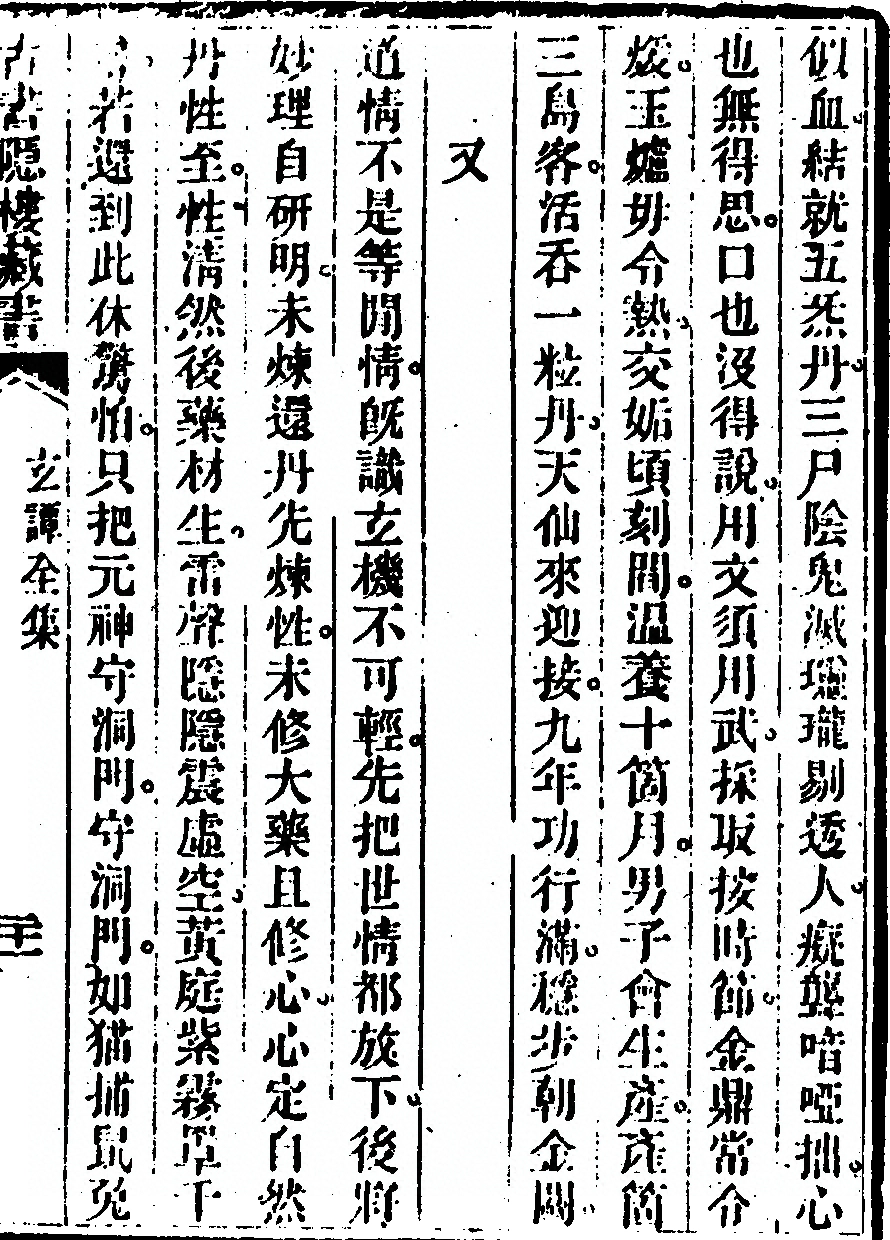 似血結就五炁丹三尸陰鬼滅瓏瓏剔透人癡聾喑啞拙心
也無得思口也沒得說用文須用武採取按時節金鼎常令
煖玉爐毋令熱交姤頃刻間溫養十箇月男子會生產產箇
三島客活吞一粒丹天仙來迎接九年功行滿穩步朝金闕
又
道情不是等閒情既識玄機不可輕先把世情都放下後將
妙理自研明未煉還丹先煉性未修大藥且修心心定自然
丹性至性清然後藥材生雷聲隱隱震虛空黃庭紫霧罩千
若還到此休驚怕只把元神守洞門守洞門如猫捕鼠兔
古書隱樓藏書 玄譚全集 二十